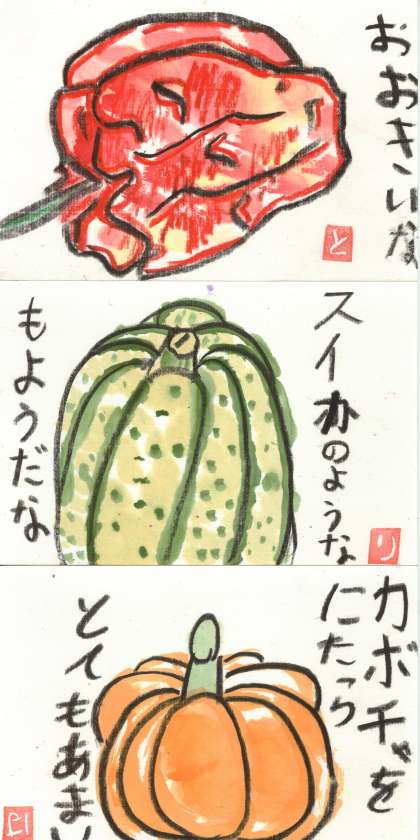 おおきいな
と
スイカのような
もようだな
り
カボチャを
にたっら
とてもあまい